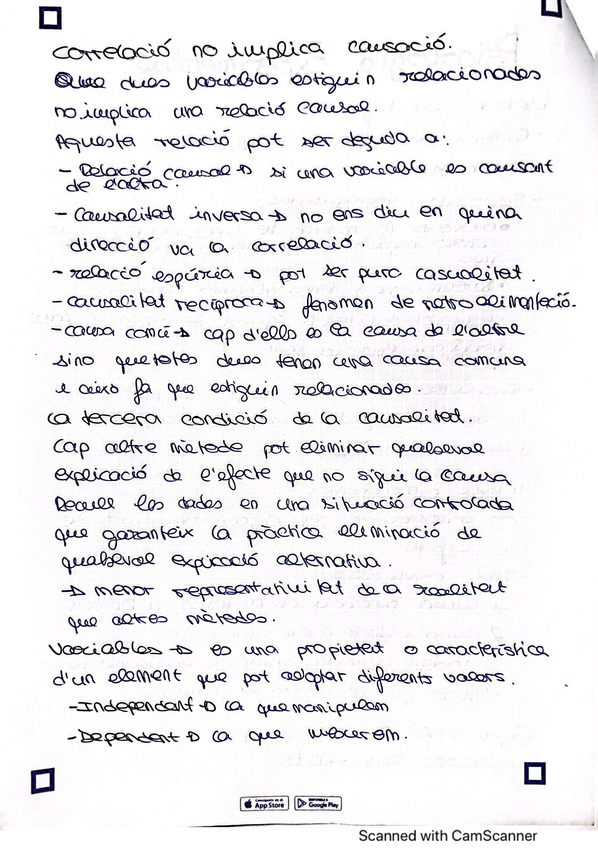 correlació no implica causació.
Que dues variables estiguin relacionades
no implica una relació causal.
Aquesta relació pot ser deguda a:
- Relació causal → si una variable es causant
de l'altra.
- Causalitat inversa → no ens diu en quina
direcció va la correlació.
- relació espúria → pot ser pura casualitat.
- causalitat recíproca → fenomen de retroalimentació.
- causa comú → cap d'ells és la causa de l'altre
sino que totes dues tenen una causa comuna
i aixo fa que estiguin relacionades.
La tercera condició de la causalitat.
Cap altre mètode pot eliminar qualsevol
explicació de l'efecte que no sigui la causa
Recull les dades en una situació controlada
que garanteix la pràctica eliminació de
qualsevol explicació alternativa.
→ menor representativitat de la realitat
que altres mètodes.
Variables → es una propietat o característica
d'un element que pot adoptar diferents valors.
- Independent → la que manipulem
- Dependent → la que mesurem.
Consíguelo en el App Store DISPONIBLE EN Google Play
Scanned with CamScanner